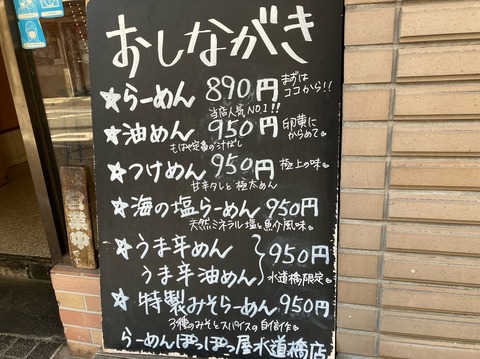 おしながき
☆らーめん 890円 まずはココから!!
当店人気NO.1!!
☆油めん 950円 卵黄にからめて。
もはや定番の汁なし
☆つけめん 950円 極上の味。
甘辛タレと極太めん
☆海の塩らーめん 950円
天然ミネラル塩と魚介風味。
☆うま辛めん
うま辛油めん 950円
水道橋限定。
☆特製みそらーめん 950円
3種のみそとスパイスの自信作。
らーめんぽっぽっ屋水道橋店